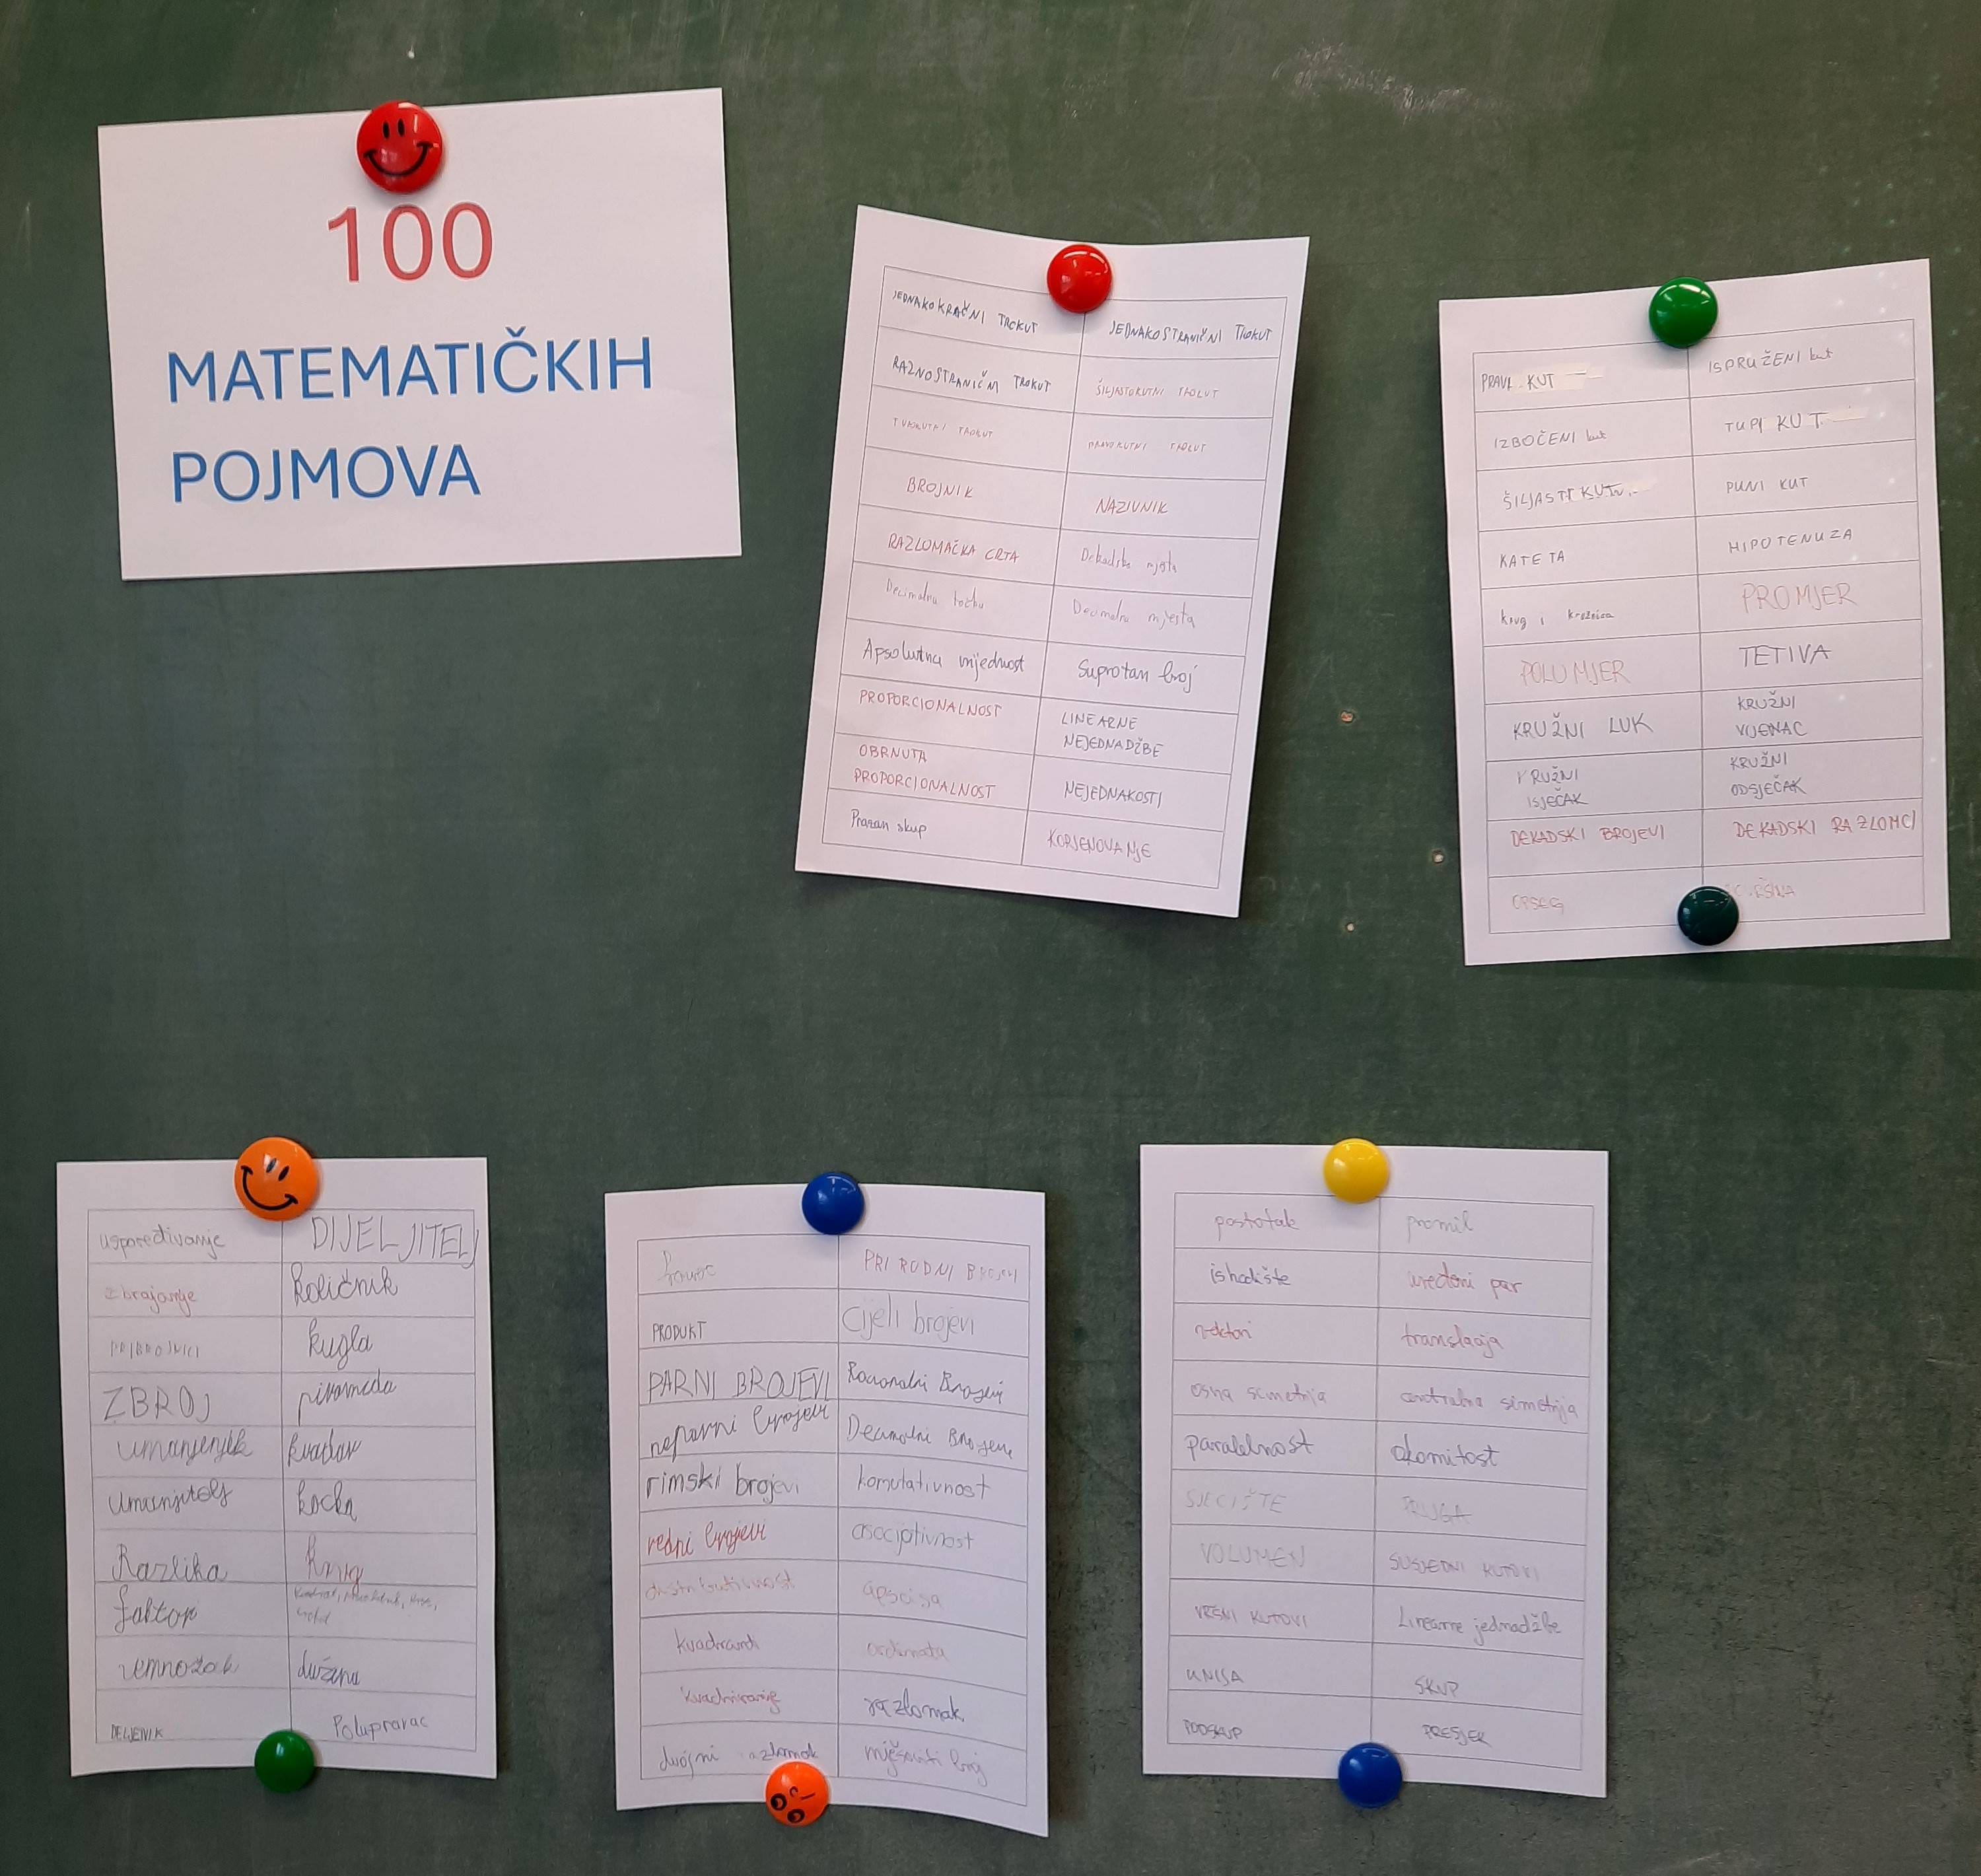 100
MATEMATIČKIH
POJMOVA
JEDNAKOKRAČNI TROKUT
JEDNAKOSTRANIČNI TROKUT
RAZNOSTRANIČNI TROKUT
ŠILJASTOKUTNI TROKUT
TUPOKUTNI TROKUT
PRAVOKUTNI TROKUT
BROJNIK
NAZIVNIK
RAZLOMAČKA CRTA
Dekadska mjesta
Decimalna točka
Decimalna mjesta
Apsolutna vrijednost
Suprotan broj
PROPORCIONALNOST
LINEARNE
NEJEDNADŽBE
OBRNUTA
PROPORCIONALNOST
NEJEDNAKOSTI
Prazan skup
KORJENOVANJE
PRAVI KUT
ISPRUŽENI kut
IZBOČENI kut
TUPI KUT
ŠILJASTI KUT
PUNI KUT
KATETA
HIPOTENUZA
krug i kružnica
PROMJER
POLUMJER
TETIVA
KRUŽNI LUK
KRUŽNI
VIJENAC
KRUŽNI
ISJEČAK
KRUŽNI
ODSJEČAK
DEKADSKI BROJEVI
DEKADSKI RAZLOMCI
OPSEG
uspoređivanje
DIJELJITELJ
zbrajanje
količnik
PRIBROJNICI
kugla
ZBROJ
piramida
umanjenik
kvadar
umanjitelj
kocka
Razlika
krug
faktor
umnožak
dužina
DELJENIK
Polupravac
PRIRODNI BROJEVI
PRODUKT
Cijeli brojevi
PARNI BROJEVI
Racionalni Brojevi
neparni brojevi
Decimalni Brojevi
rimski brojevi
komutativnost
redni brojevi
asocijativnost
distributivnost
apscisa
kvadranti
ordinata
kvadriranje
razlomak
dvojni razlomak
mješoviti broj
postotak
promil
ishodište
uređeni par
vektori
translacija
osna simetrija
centralna simetrija
paralelnost
okomitost
SJECIŠTE
PRUGA
VOLUMEN
SUSJEDNI KUTOVI
VRŠNI KUTOVI
Linearne jednadžbe
UNIJA
SKUP
PODSKUP
PRESJEK